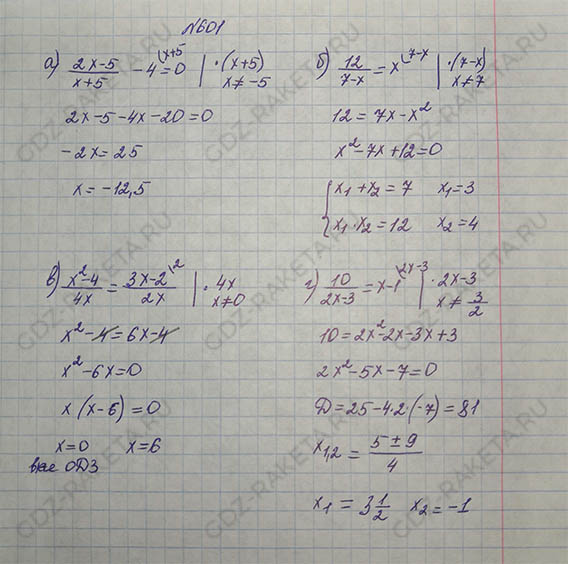 №601
а) (2x-5)/(x+5) - 4^(\x+5) = 0 | ·(x+5) x≠-5
2x-5-4x-20=0
-2x=25
x=-12,5
б) 12/(7-x) = x^(\7-x) | ·(7-x) x≠7
12=7x-x²
x²-7x+12=0
{ x₁+x₂=7 x₁=3
x₁·x₂=12 x₂=4
в) (x²-4)/(4x) = (3x-2)/(2x)^(\2) | ·4x x≠0
x²-4=6x-4
x²-6x=0
x(x-6)=0
x=0 x=6
вне ОДЗ
г) 10/(2x-3) = x-1^(\2x-3) | ·2x-3 x≠3/2
10=2x²-2x-3x+3
2x²-5x-7=0
Д=25-4·2·(-7)=81
x₁,₂ = (5±9)/4
x₁ = 3 1/2 x₂=-1
GDZ-RAKETA.RU